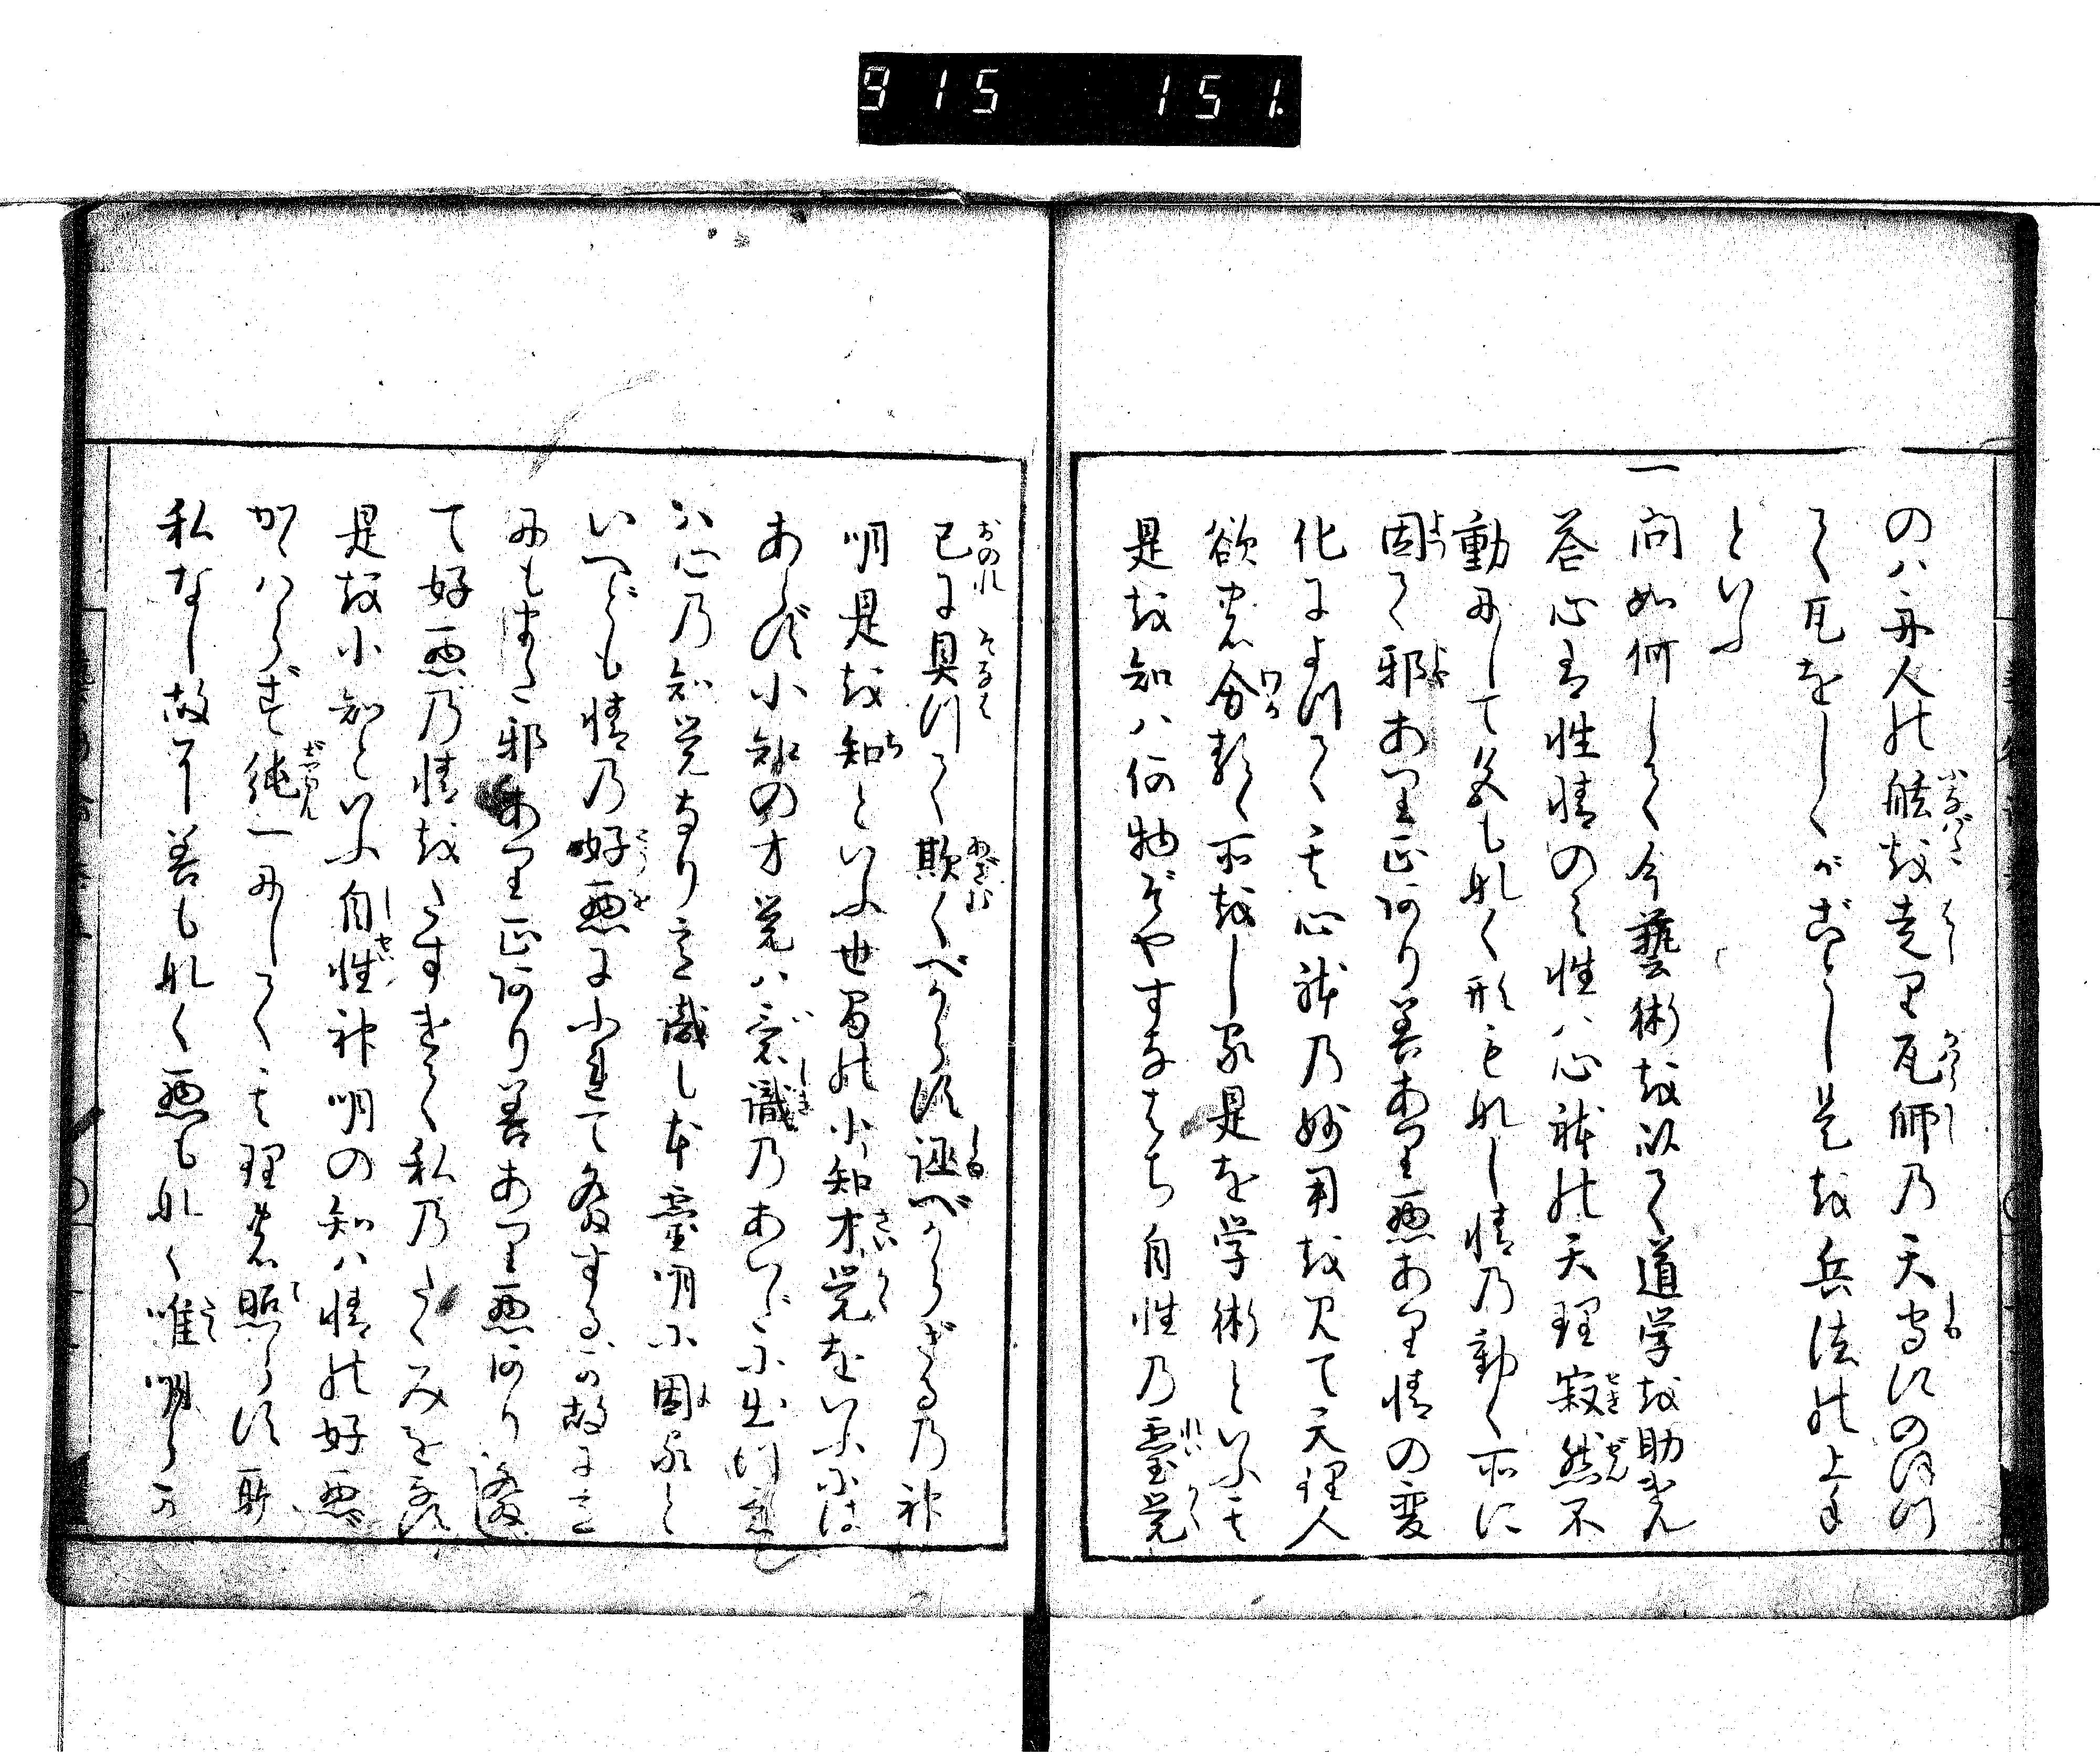 915 151
のハ舟人の舷を走里瓦師乃天守にのぼつ
て瓦をしくがごとし是を兵法の上手
といふ
一問如何して今藝術を以て道学を助けん
答心は性情のミ性ハ心躰の天理寂然不
動にして色も形く形も那し情乃動く所に
因て邪あり正あり善あり悪あり情の変
化によつて其心躰乃妙用を見て天理人
欲の分るゝ所を是を学術といふ其
是を知ハ何物ぞやすなはち自性乃霊覚
己に具つて欺くべからず誣べからざる乃神
明是を知といふ世間の小知才覚をいふには
あらず小知の才覚ハ意識乃あいだに出つ意
ハ心乃知覚なり意識もと霊明に因ると
いへども情乃好悪にふれて発するが故に意
にもまた邪あり正あり善あり悪あり
て好悪乃情をたすけて私乃たくみを為
是を小知といふ自性神明の知ハ情の好悪に
かゝハらず純一にして其理の照らす所
私なし故に善も那く悪も那く唯明らか